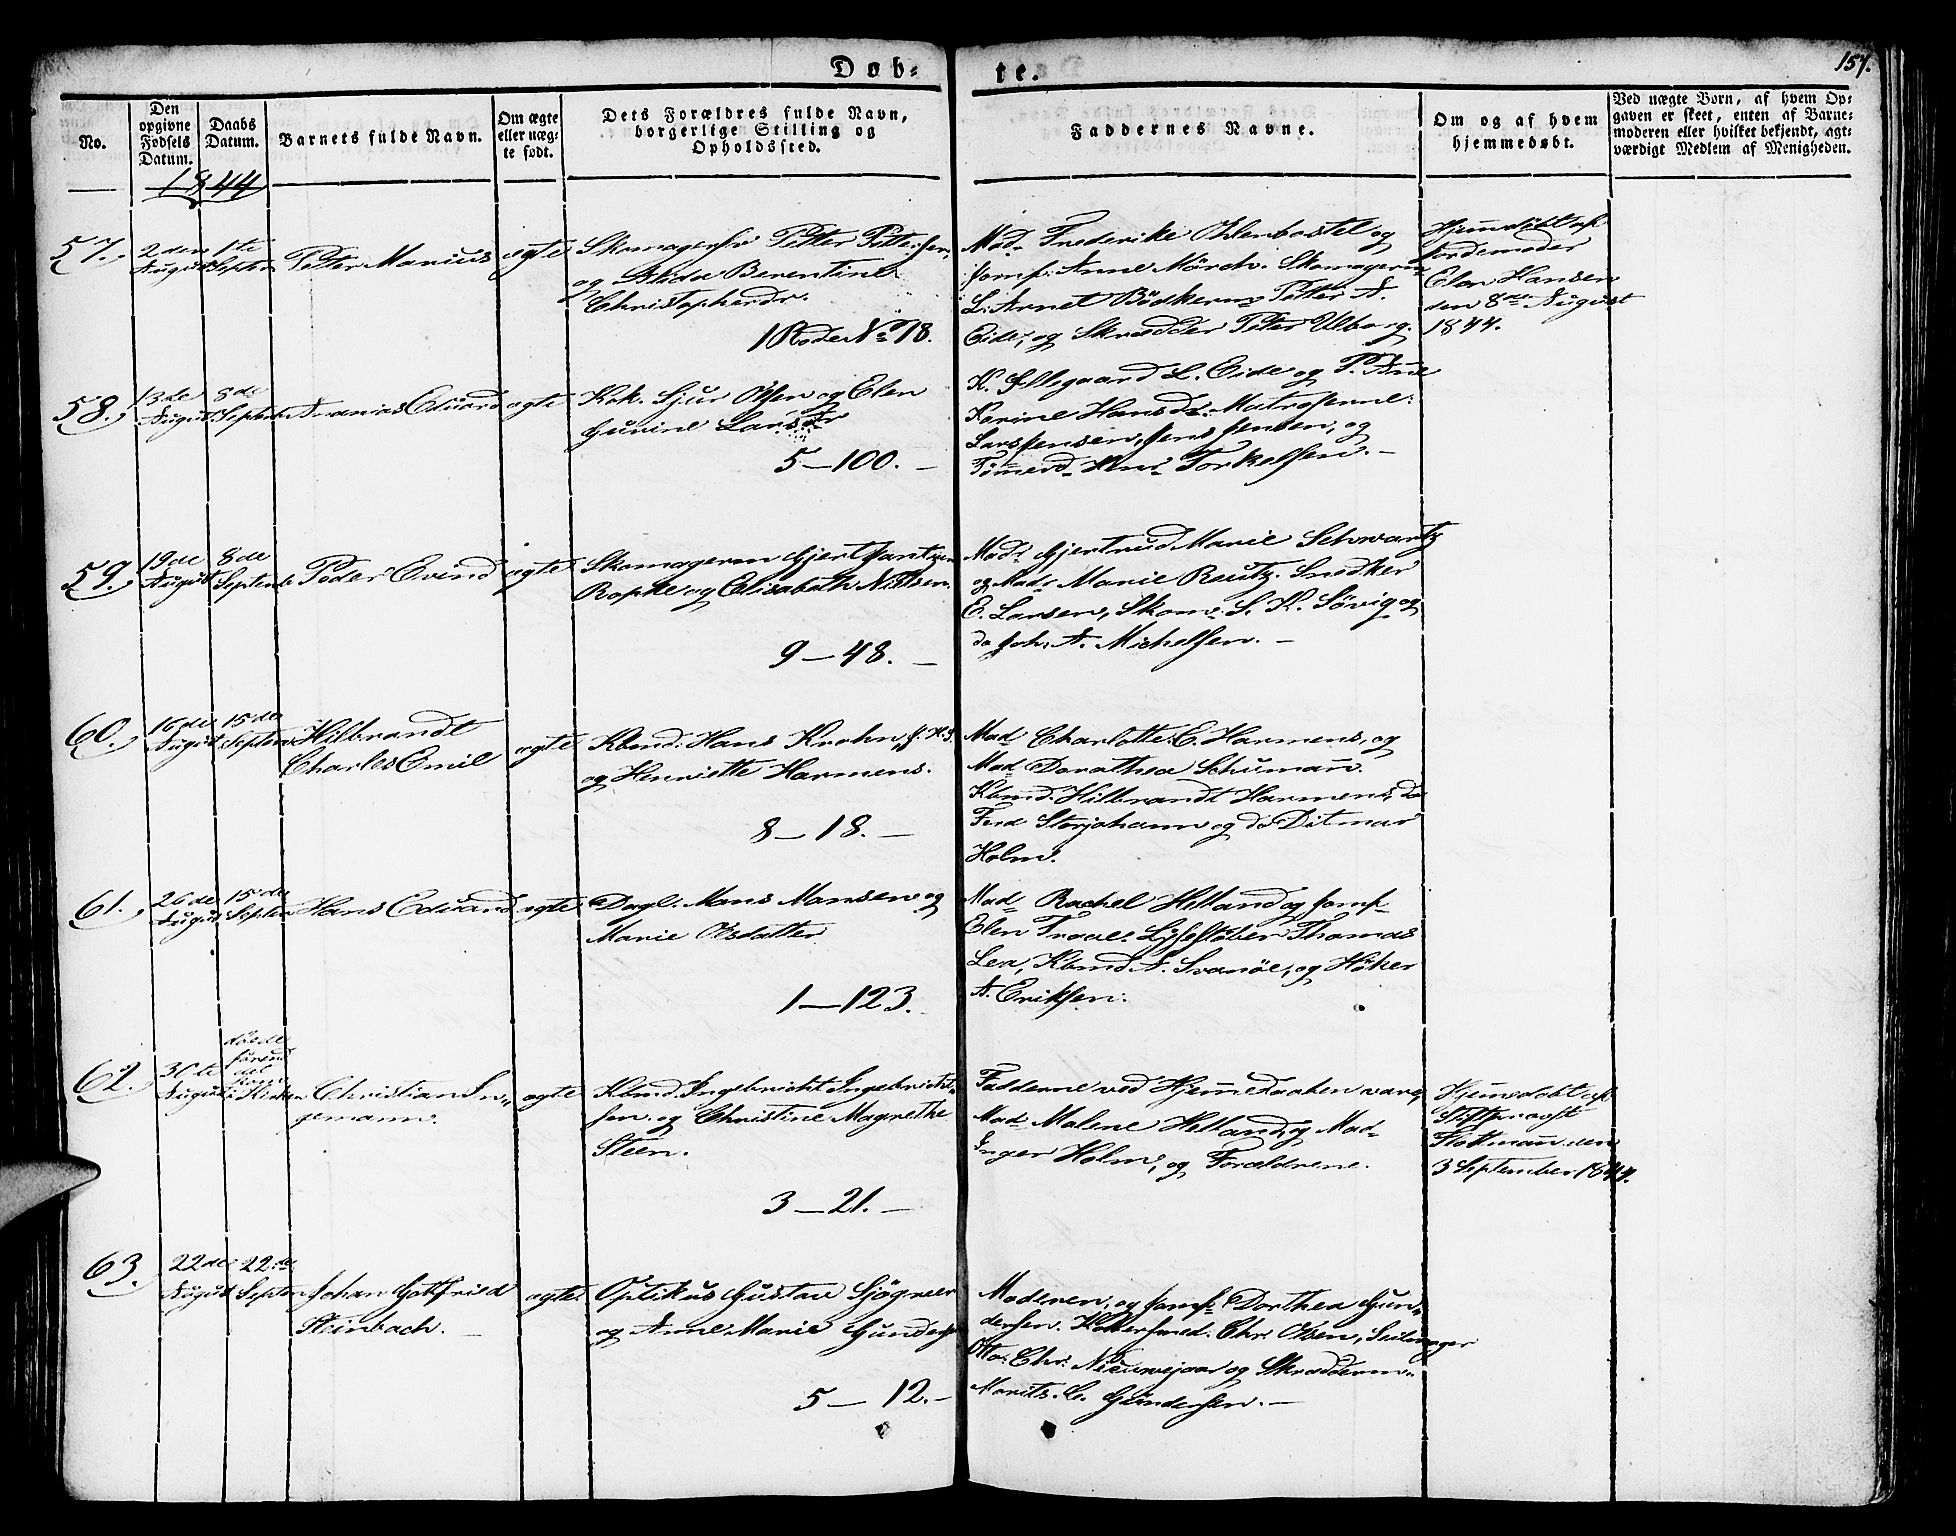 Døb-
te.
157.
No.
Den opgivne Fødsels Datum.
Daabs Datum.
Barnets fulde Navn.
Om ægte eller uæg- te født.
Dets Forældres fulde Navn, borgerlige Stilling og Opholdssted.
Faddernes Navne.
Om og af hvem hjemmedøbt.
Ved uægte Born, af hvem Op- gaven er skeet, enten af Barne- moderen eller hvilket bekjendt, agt- værdigt Medlem af Menigheden.
1844
57.
2den August
1te Septbr
Peter Marius
ægte
Skomagersv Petter Pettersen,
og Alida Berentine
Christophersdr.
1 Rode No 78.
Mad. Frederike Ohlenbostel og
Jomf. Anne Mörch. Skomagerm
L. Arnet Bödkerm Petter A.
Eide, og Skrædder Peter Ulborg.
Hjemdöbt af
Jordemoder
Elen Hansen
den 8de August
1844.
58.
13de August
8de Septbr
Ananias Eduard
ægte
Kok. Sjur Olsen og Elen
Gurine Larsdr
5 — 100. —
K. Ellegaard L. Eide og P. Anne
Karine Hansdr. Matroserne:
Lars Jensen, Jens Jensen, og
Tömerd. Torkelsen. —
59.
19de August
8de Septembr
Peder Evind
ægte
Skomagerm Gjert Jantzen
Ropke og Elisabeth Nielsen.
9 — 48. —
Mad. Gjertrud Marie Schwartz
og Mad. Marie Reutz. Snedker
E. Larsen, Skom. S. K. Sövig og
do Joh. A. Michelsen. —
60.
16de August
15de Septbr
Hilbrandt
Charles Emil
ægte
Kbmd. Hans Krohn, f. H. S.
og Henriette Harmens.
8 — 18. —
Mad Charlotte C. Harmens, og
Mad Dorothea Schumann.
Kbmd. Hilbrandt Harmens, do
Ferd Storjohann og do Ditmar
Holm.
61.
26de August
15de Septbr
Hans Eduard
ægte
Dagl. Mons Monsen og
Marie Olsdatter
1 — 123.
Mad. Rachel Helland og Jomf.
Elen Troae. Lysestøber Thomas
Lea, Kbmd A. Svanöe, og Höker
A. Eriksen.
62.
30te August
døede förend det kom i Kirken
Christian In-
gemann.
ægte
Kbmd. Ingebricht Ingebricht-
sen og Christine Magrethe
Steen.
3 — 21. —
Fadderne ved Hjemmedaaben vare,
Mad. Malene Helland, og Mad.
Inger Holm, og Forældrene.
Hjemdöbt af
Stiftsprovst
Flottmann den
3 September 1844.
63.
22de August
22de Septbr
Johan Gottfried
Steinbach.
ægte.
Optikus Gustav Sjögreen
og Anne Marie Gundersen
5 — 12. —
Moderen, og Jomf. Dorthea Gun-
dersen. Kobersmed. Chr. Olsen, Seilmager
Otto Chr. Nieuwejaar og Skrædderm.
Morits. C. Gundersen. —